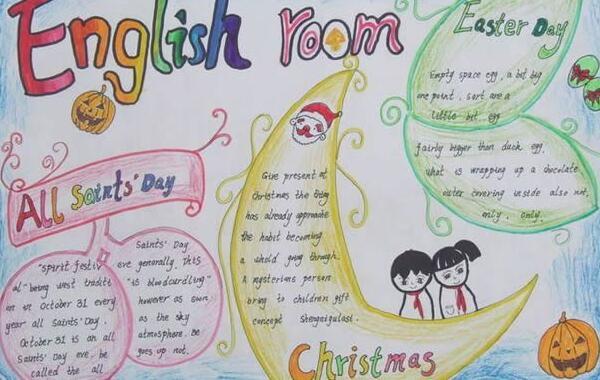 English room
Easter Day
Empty space egg, a bit big
one point, sort are a
little bit egg
fairly bigger than duck egg,
what is wrapping up a chocolate
outer covering inside also not,
only, only.
All Saints' Day
"spirit festiv
al" being west traditi
on on October 31 every
year all Saints' Day.
October 31 is an all
Saints' Day eve, be
called the all
Saints' Day
eve generally. This
"is bloodcurdling"
however as soon
as the sky
atmosphere. Be
goes up not.
Give present of
Christmas the thing
has already approache
the habit becoming
a whold going through.
A mysterious person
bring to children gift
concept Shengnigulasi.
Christmas